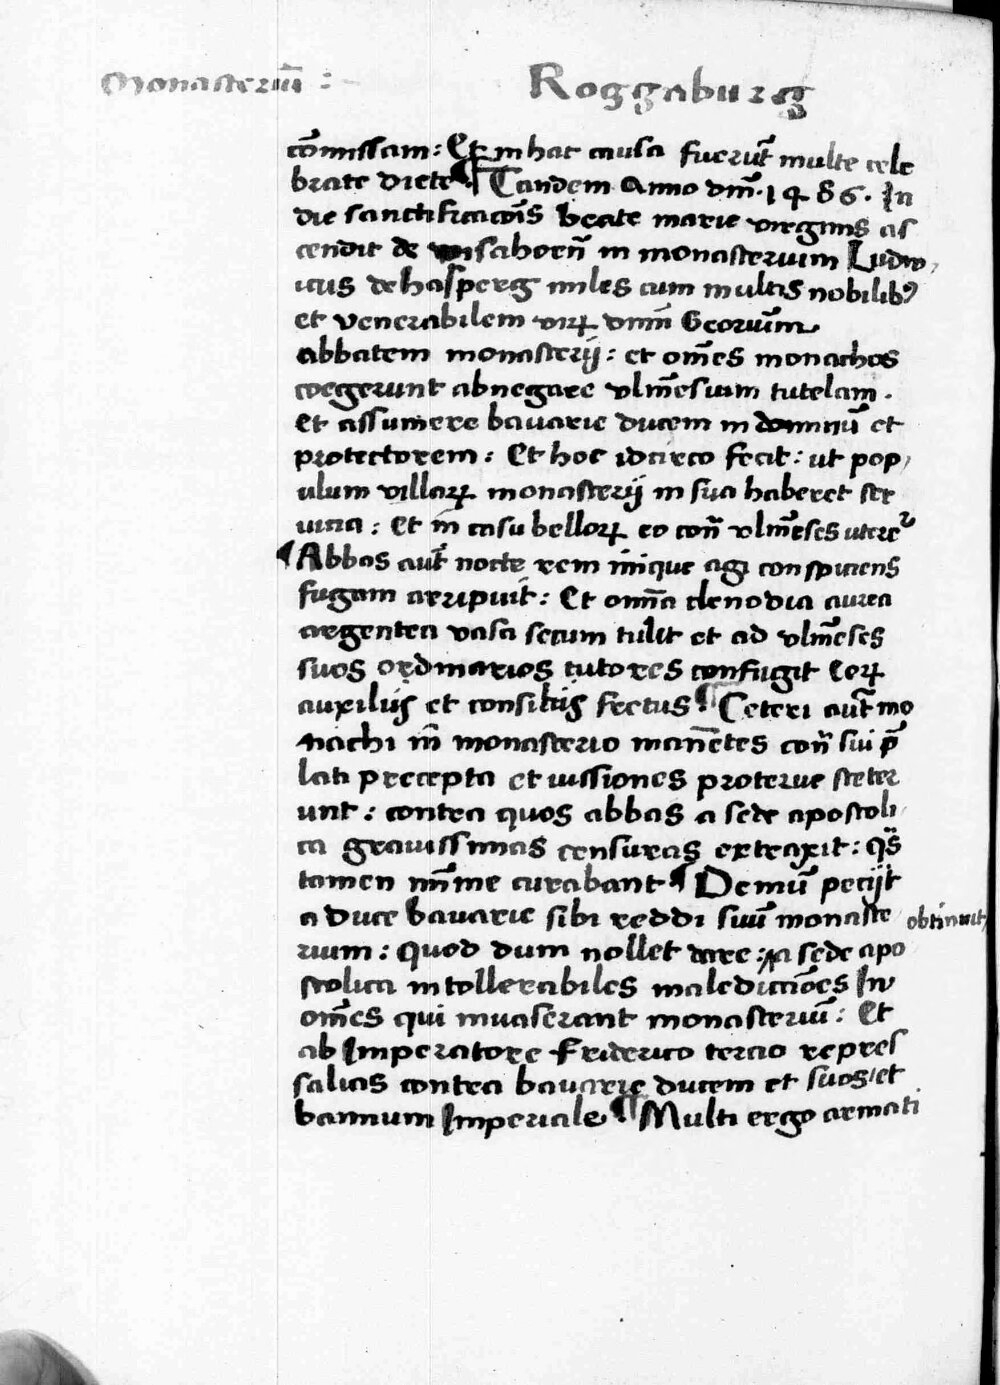 Monasteriū : Roggaburg
cōmissam : Et in hac causa fuerūt multe cele
brate diete ¶ Tandem Anno dm̄ · 1486 · In
die sanctificacōīs beate marie virginis as
cendit de wisahorn̄ in monasterium Ludw,
icus de hasperg miles cum multis nobilibꝯ
et venerabilem virꝝ dnm̄ Georium
abbatem monasterij : et om̄es monachos
coegerunt abnegare vlm̄esium tutelam .
Et assumere bavarie ducem in dominū et
protectorem : Et hoc idcirco fecit : ut pop,
ulum villarꝝ monasterij in sua haberet ser
uicia : Et in casu bellorꝝ eo con̄ vlm̄eses utere
¶ Abbas aut̄ nocte rem inique agi conspiciens
fugam arripuit : Et om̄ia clenodia aurea
argentea vasa secum tulit et ad vlm̄eses
suos ordinarios tutores confugit Eorꝝ
auxilijs et consilijs fretus ¶ Ceteri aut̄ mo
nachi in monasterio manētes con̄ sui p̄
lati precepta et iussiones proterue steter
unt : contra quos abbas a sede apostoli
ca grauissimas censuras extraxit : qs̄
tamen min̄me curabant ¶ Demū petijt
a duce bavarie sibi reddi suū monaste
rium : Quod dum nollet dare : a sede apo obtinuit
stolica intollerabiles maledictiōes In
om̄es qui inuaserant monasteriū : Et
ab Imperatore Friderico tercio repres
salias contra bavarie ducem et suos / et
bannum Imperiale ¶ Multi ergo armati